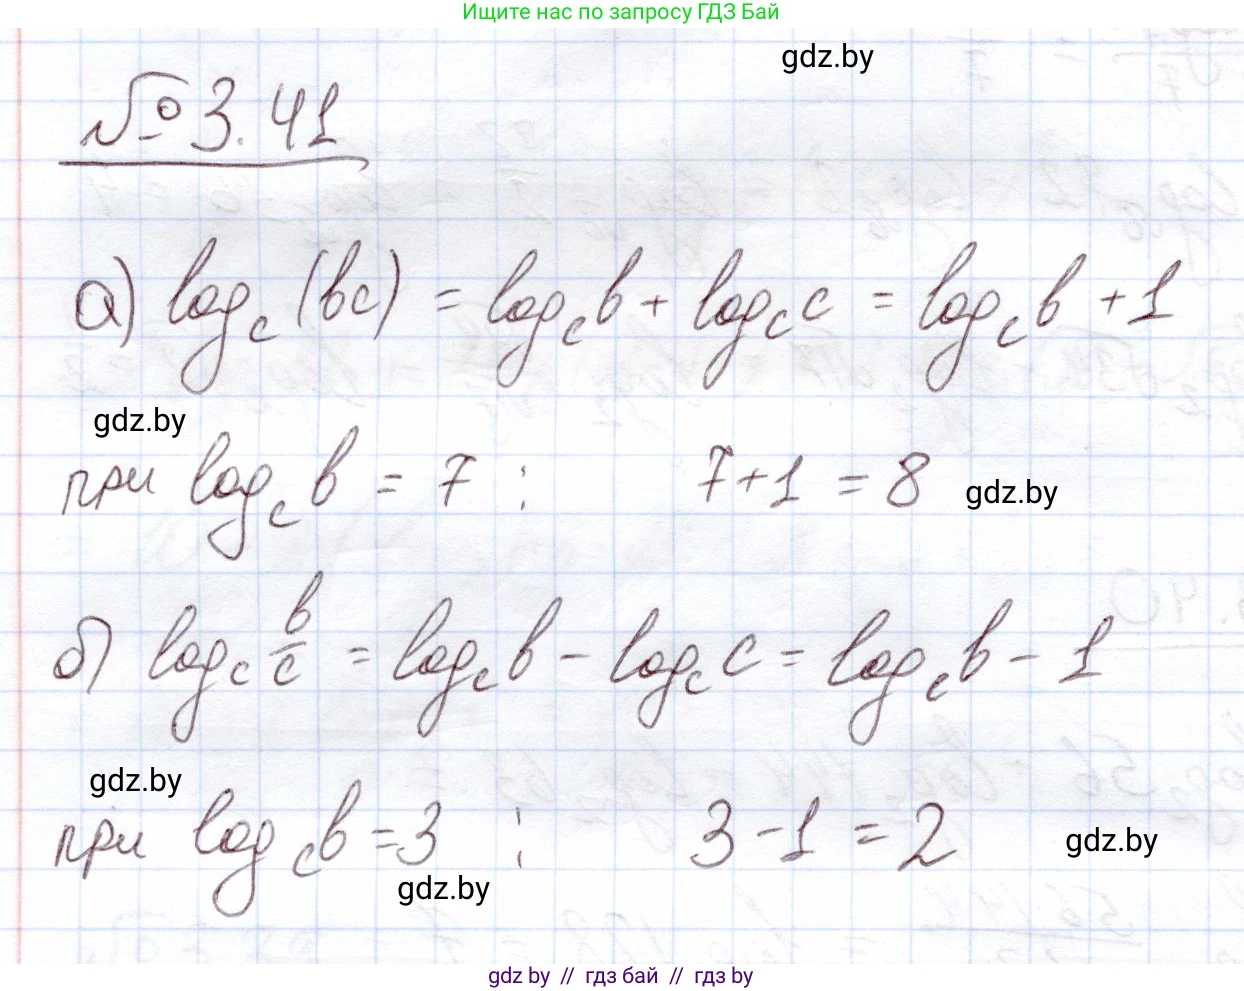 Ищите нас по запросу ГДЗ Бай
gdz.by
№ 3.41
а) log_c (bc) = log_c b + log_c c = log_c b + 1
gdz.by
при log_c b = 7 ; 7+1 = 8 gdz.by
б) log_c b/c = log_c b - log_c c = log_c b - 1
gdz.by
при log_c b = 3 ; 3-1 = 2 gdz.by
gdz.by
gdz by // гдз бай // гдз by